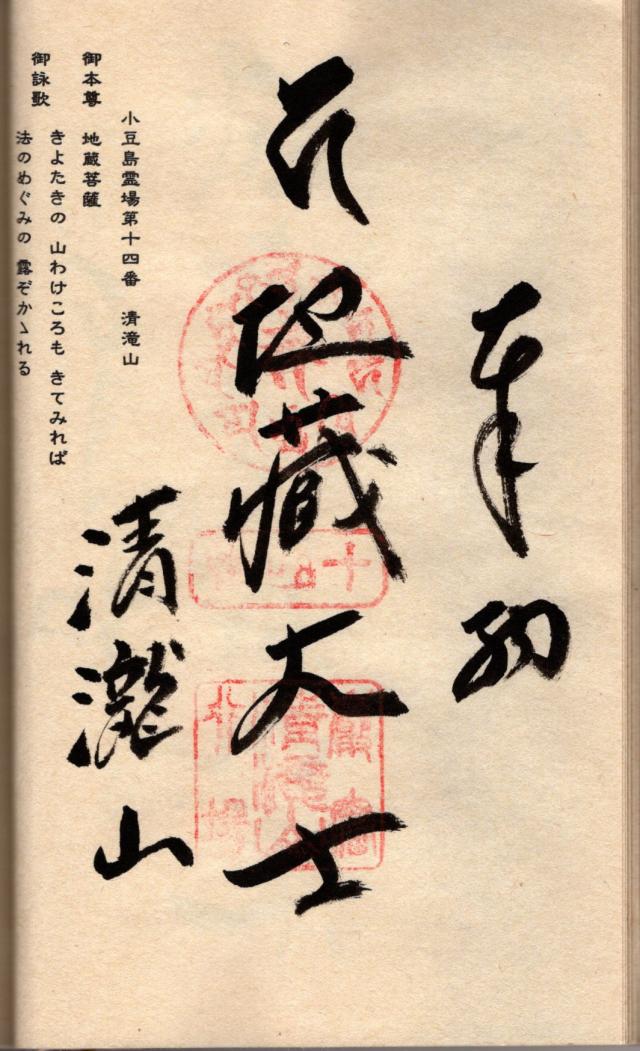 奉納
地蔵大士
清瀧山
小豆島霊場第十四番 清滝山
御本尊 地蔵菩薩
御詠歌 きよたきの 山わけころも きてみれば
法のめぐみの 露ぞかゝれる